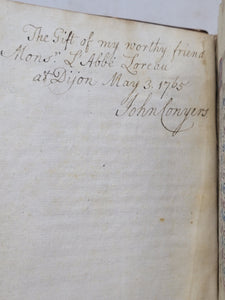 The Gift of my worthy friend
Monsr. L'Abbé Loreau
at Dijon May 3. 1765
John Conyers